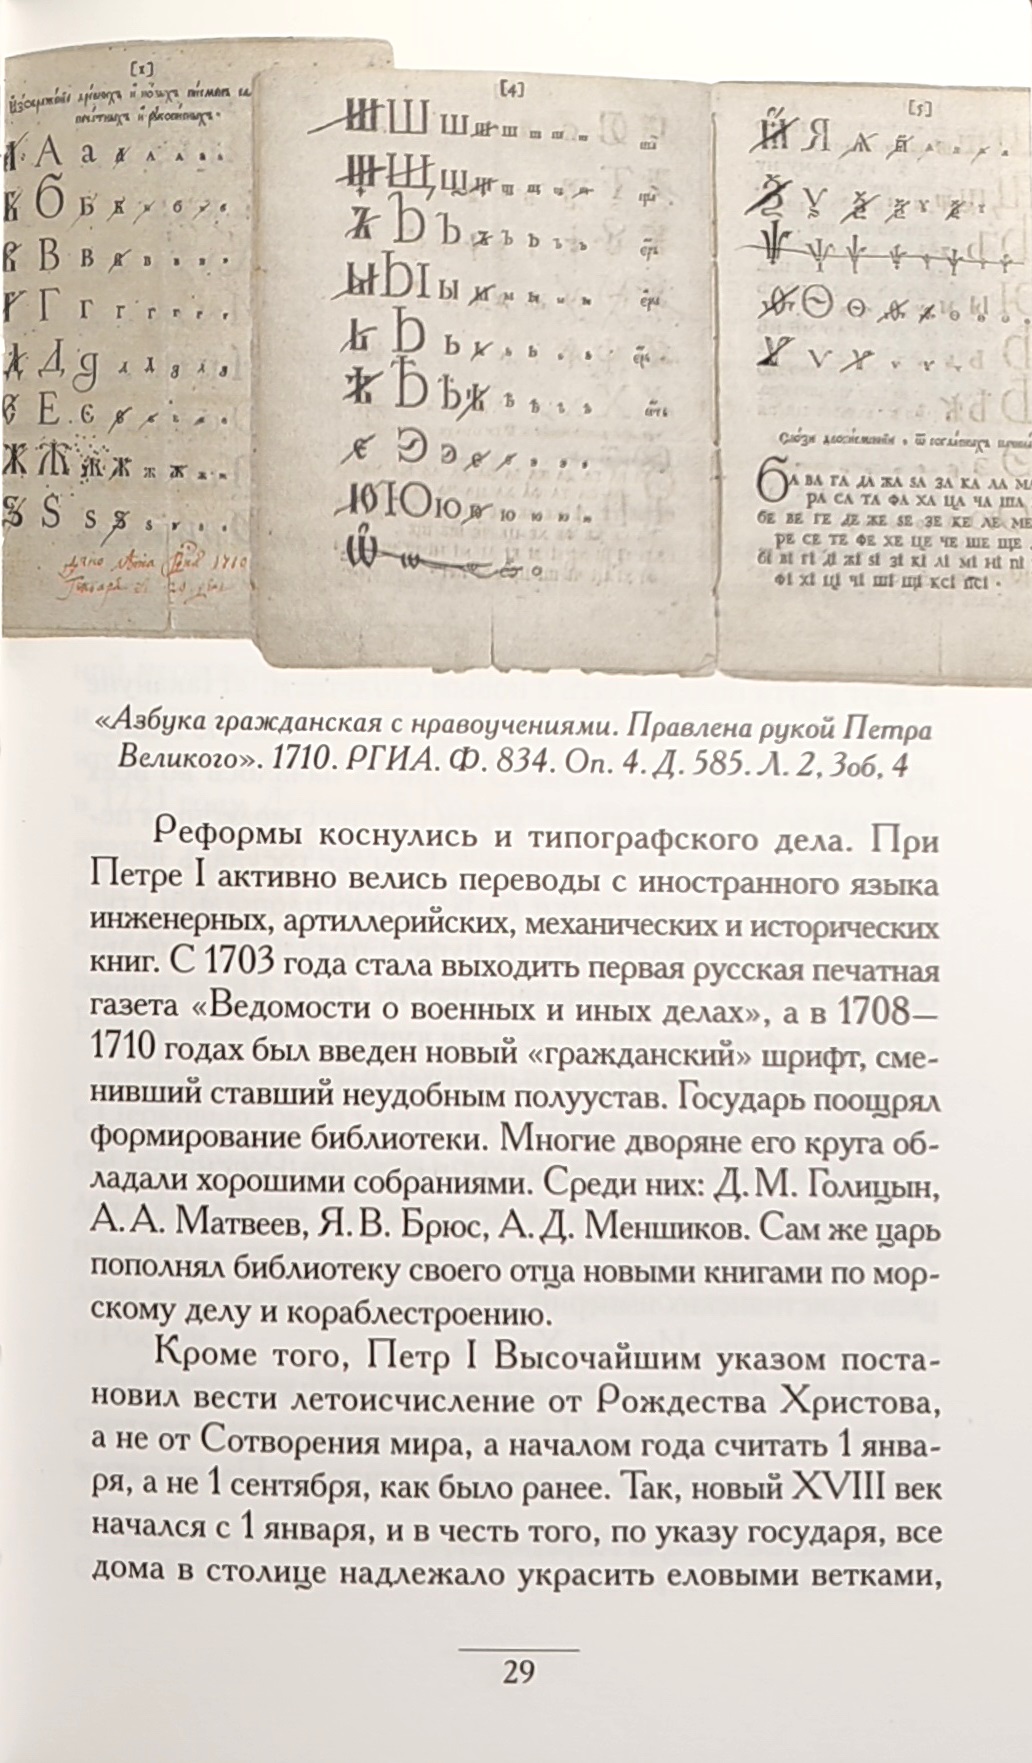 [1]
А а
Б Б
В В
Г Г
Д
Е Є
Ж Ж
Ѕ Ѕ ѕ
[4]
Ш Ш ш
Щ Щ щ
Ъ Ъ ъ
Ы Ы ы
Ь Ь ь
Ѣ Ѣ ѣ
є Э э
Ю Ю ю
Ѿ
[5]
Я
Ѯ
Ѱ
Ѳ Ѳ
Ѵ ѵ
БА ВА ГА ДА ЖА ЅА ЗА КА ЛА МА
РА СА ТА ФА ХА ЦА ЧА ША
БЕ ВЕ ГЕ ДЕ ЖЕ ЅЕ ЗЕ КЕ ЛЕ МЕ
РЕ СЕ ТЕ ФЕ ХЕ ЦЕ ЧЕ ШЕ ЩЕ
БІ ВІ ГІ ДІ ЖІ ЅІ ЗІ КІ ЛІ МІ НІ ПІ
ФІ ХІ ЦІ ЧІ ШІ ЩІ КСІ ПСІ
«Азбука гражданская с нравоучениями. Правлена рукой Петра
Великого». 1710. РГИА. Ф. 834. Оп. 4. Д. 585. Л. 2, 3об, 4
Реформы коснулись и типографского дела. При
Петре I активно велись переводы с иностранного языка
инженерных, артиллерийских, механических и исторических
книг. С 1703 года стала выходить первая русская печатная
газета «Ведомости о военных и иных делах», а в 1708—
1710 годах был введен новый «гражданский» шрифт, сме-
нивший ставший неудобным полуустав. Государь поощрял
формирование библиотеки. Многие дворяне его круга об-
ладали хорошими собраниями. Среди них: Д. М. Голицын,
А. А. Матвеев, Я. В. Брюс, А. Д. Меншиков. Сам же царь
пополнял библиотеку своего отца новыми книгами по мор-
скому делу и кораблестроению.
Кроме того, Петр I Высочайшим указом поста-
новил вести летоисчисление от Рождества Христова,
а не от Сотворения мира, а началом года считать 1 янва-
ря, а не 1 сентября, как было ранее. Так, новый XVIII век
начался с 1 января, и в честь того, по указу государя, все
дома в столице надлежало украсить еловыми ветками,
29